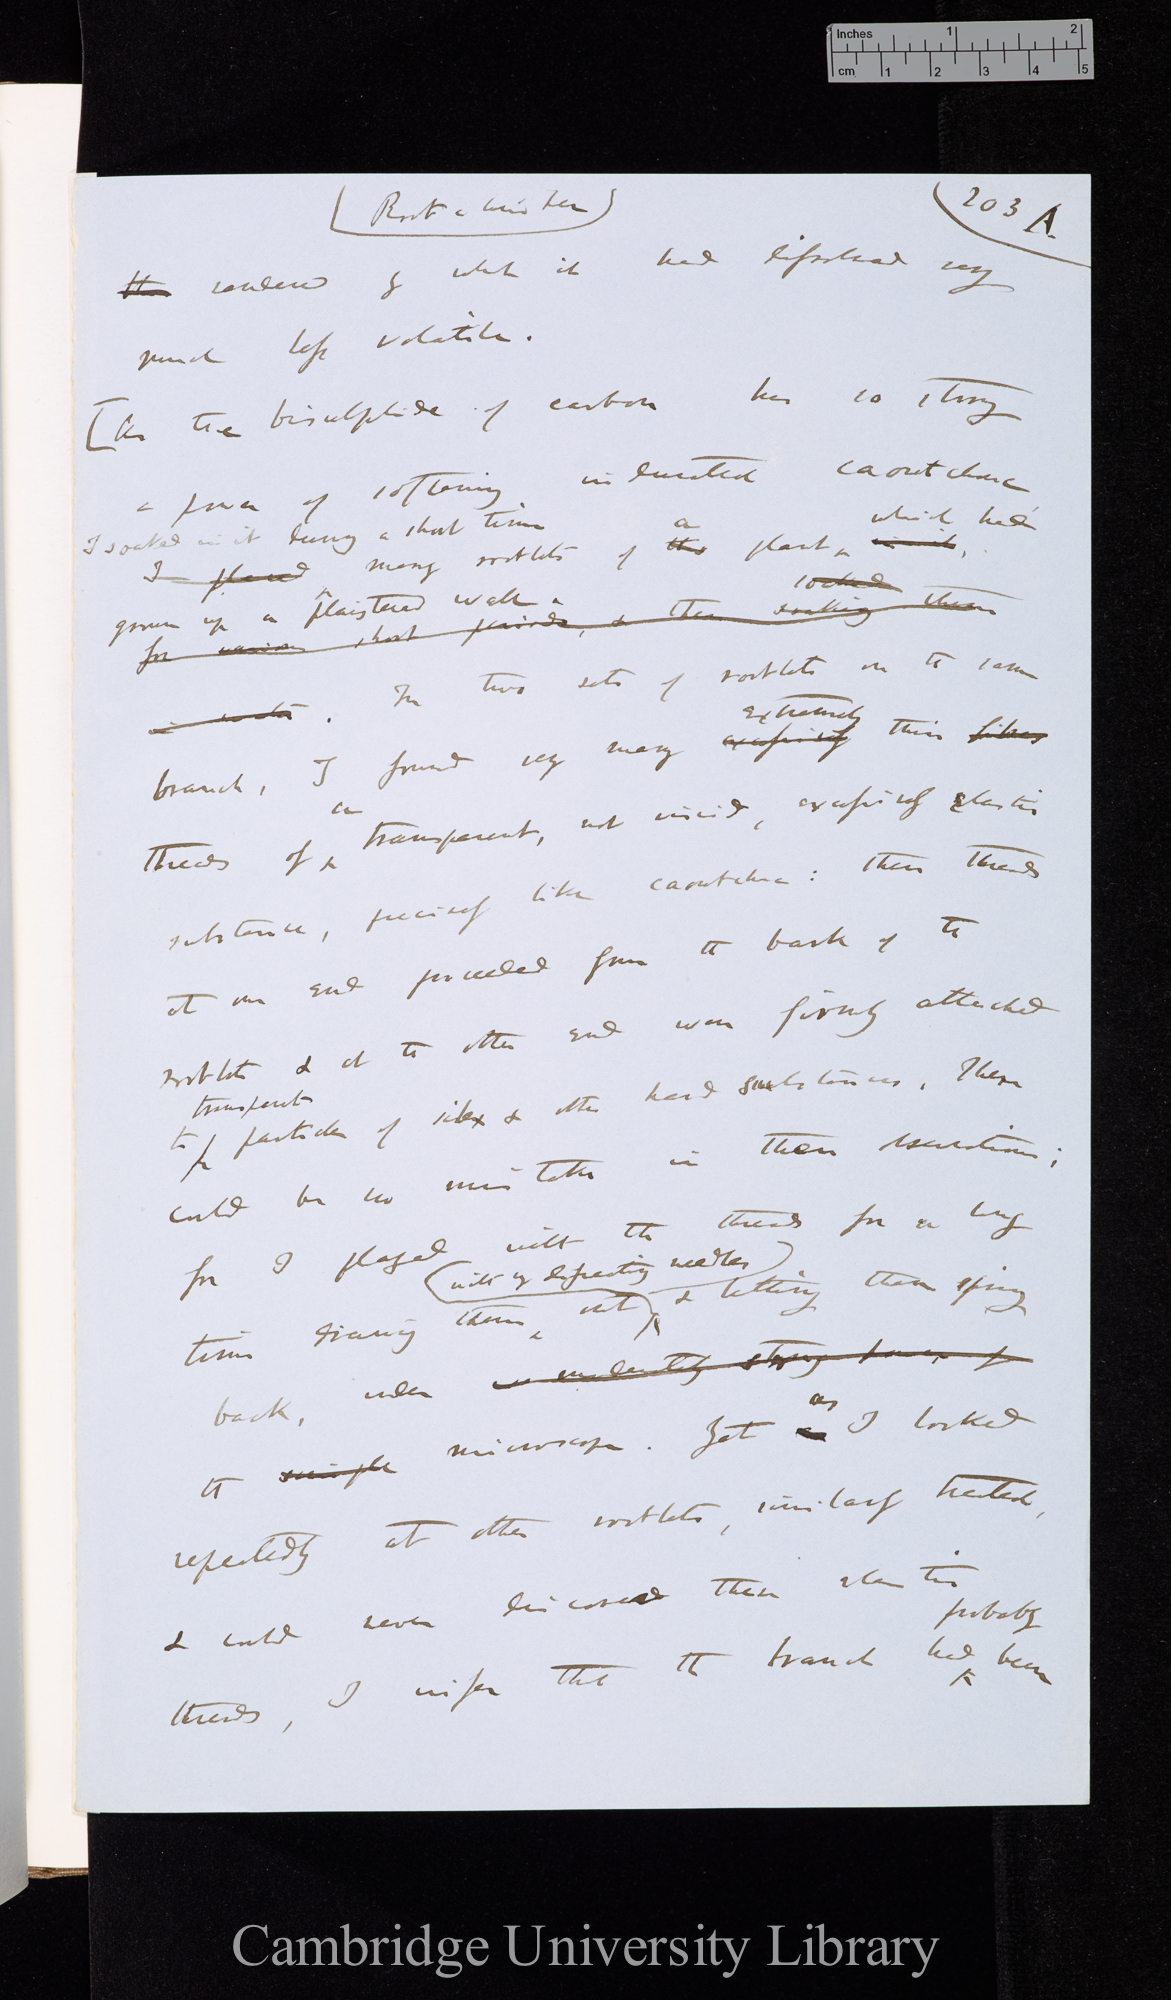 Inches 1 2
cm 1 2 3 4 5
(Root-climber)
203 A
the rendered of what it had dissolved very
much less volatile.
[As the bisulphide of carbon has so strong
a power of softening indurated caoutchouc
I soaked in it during a short time a which had
I placed many rootlets of the plant, in it,
grown up a plaistered wall. soaked
for various short periods, & then soaking them
in water. In two sets of rootlets on the same
extremely
branch, I found very many excessively thin fibres
an
threads of transparent, not viscid, excessively elastic
substance, precisely like caoutchouc: these threads
at one end proceeded from the bark of the
rootlets & at the other end were firmly attached
transparent
to particles of silex & other hard substances. There
could be no mistake in these observations;
for I played with the threads for a long
(with my dissecting needles)
time drawing them out & letting them spring
back, under a moderately strong power of
as
the simple microscope. Yet as I looked
repeatedly at other rootlets, similarly treated,
& could never discovered these elastic
probably
threads, I infer that the branch had been
Cambridge University Library